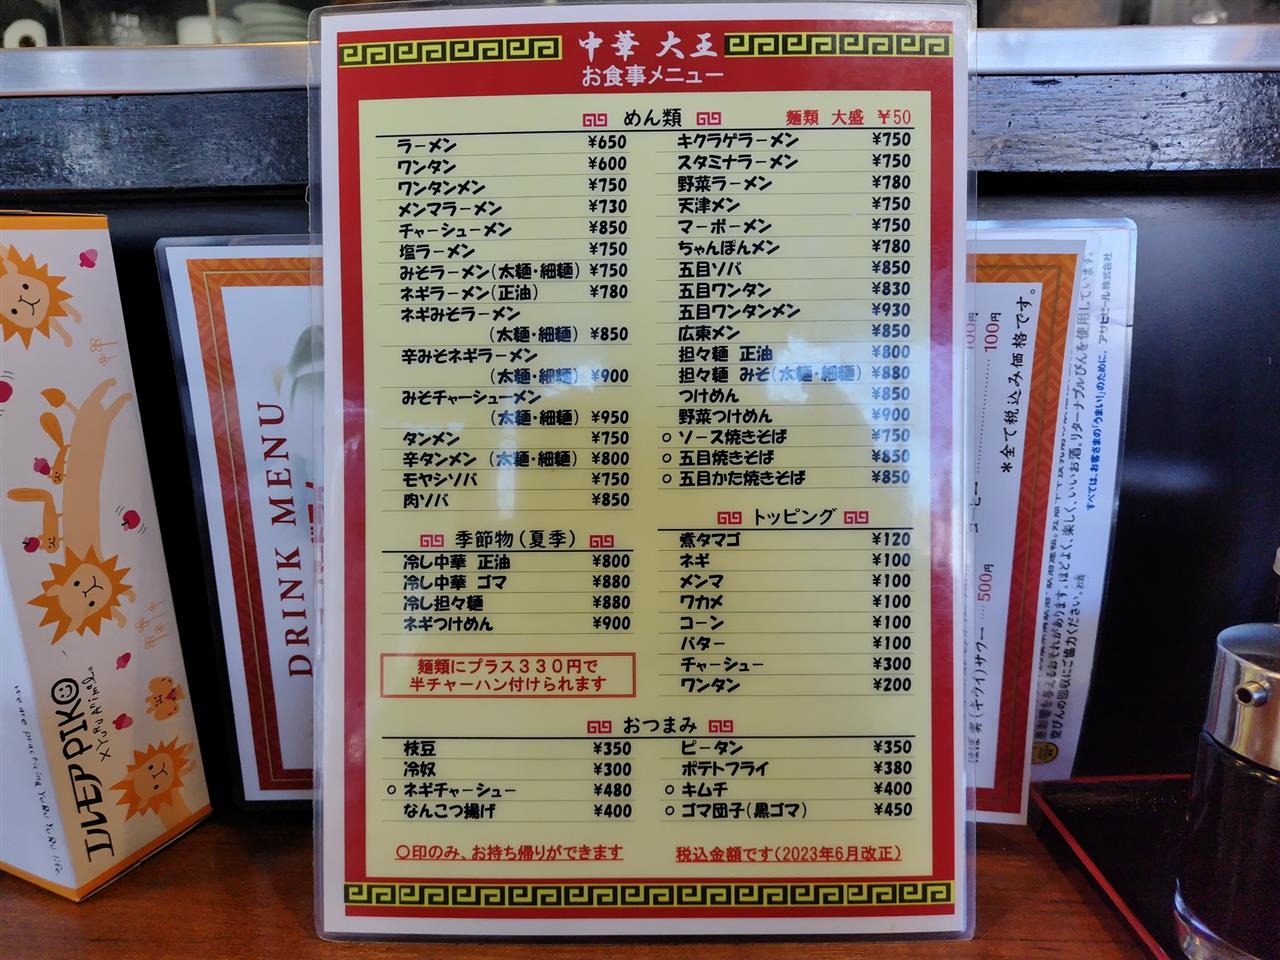 中華 大王
お食事メニュー
めん類
麺類 大盛 ¥50
ラーメン ¥650
ワンタン ¥600
ワンタンメン ¥750
メンマラーメン ¥730
チャーシューメン ¥850
塩ラーメン ¥750
みそラーメン(太麺・細麺) ¥750
ネギラーメン(正油) ¥780
ネギみそラーメン
(太麺・細麺) ¥850
辛みそネギラーメン
(太麺・細麺) ¥900
みそチャーシューメン
(太麺・細麺) ¥950
タンメン ¥750
辛タンメン (太麺・細麺) ¥800
モヤシソバ ¥750
肉ソバ ¥850
キクラゲラーメン ¥750
スタミナラーメン ¥750
野菜ラーメン ¥780
天津メン ¥750
マーボーメン ¥750
ちゃんぽんメン ¥780
五目ソバ ¥850
五目ワンタン ¥830
五目ワンタンメン ¥930
広東メン ¥850
担々麺 正油 ¥800
担々麺 みそ(太麺・細麺) ¥880
つけめん ¥850
野菜つけめん ¥900
○ ソース焼きそば ¥750
○ 五目焼きそば ¥850
○ 五目かた焼きそば ¥850
季節物(夏季)
冷し中華 正油 ¥800
冷し中華 ゴマ ¥880
冷し担々麺 ¥880
ネギつけめん ¥900
麺類にプラス330円で
半チャーハン付けられます
トッピング
煮タマゴ ¥120
ネギ ¥100
メンマ ¥100
ワカメ ¥100
コーン ¥100
バター ¥100
チャーシュー ¥300
ワンタン ¥200
おつまみ
枝豆 ¥350
冷奴 ¥300
○ ネギチャーシュー ¥480
なんこつ揚げ ¥400
ピータン ¥350
ポテトフライ ¥380
○ キムチ ¥400
○ ゴマ団子(黒ゴマ) ¥450
○印のみ、お持ち帰りができます
税込金額です(2023年6月改正)
DRINK MENU
エルモア PIKO
x YURU Animal.
we are practicing YURU YURU life
*全て税込み価格です。
100円
100円
(キウイ)サワー ‥‥ 500円
すべては、お客さまの「うまい!」のために。アサヒビール株式会社
空びんの回収にご協力ください。お酒